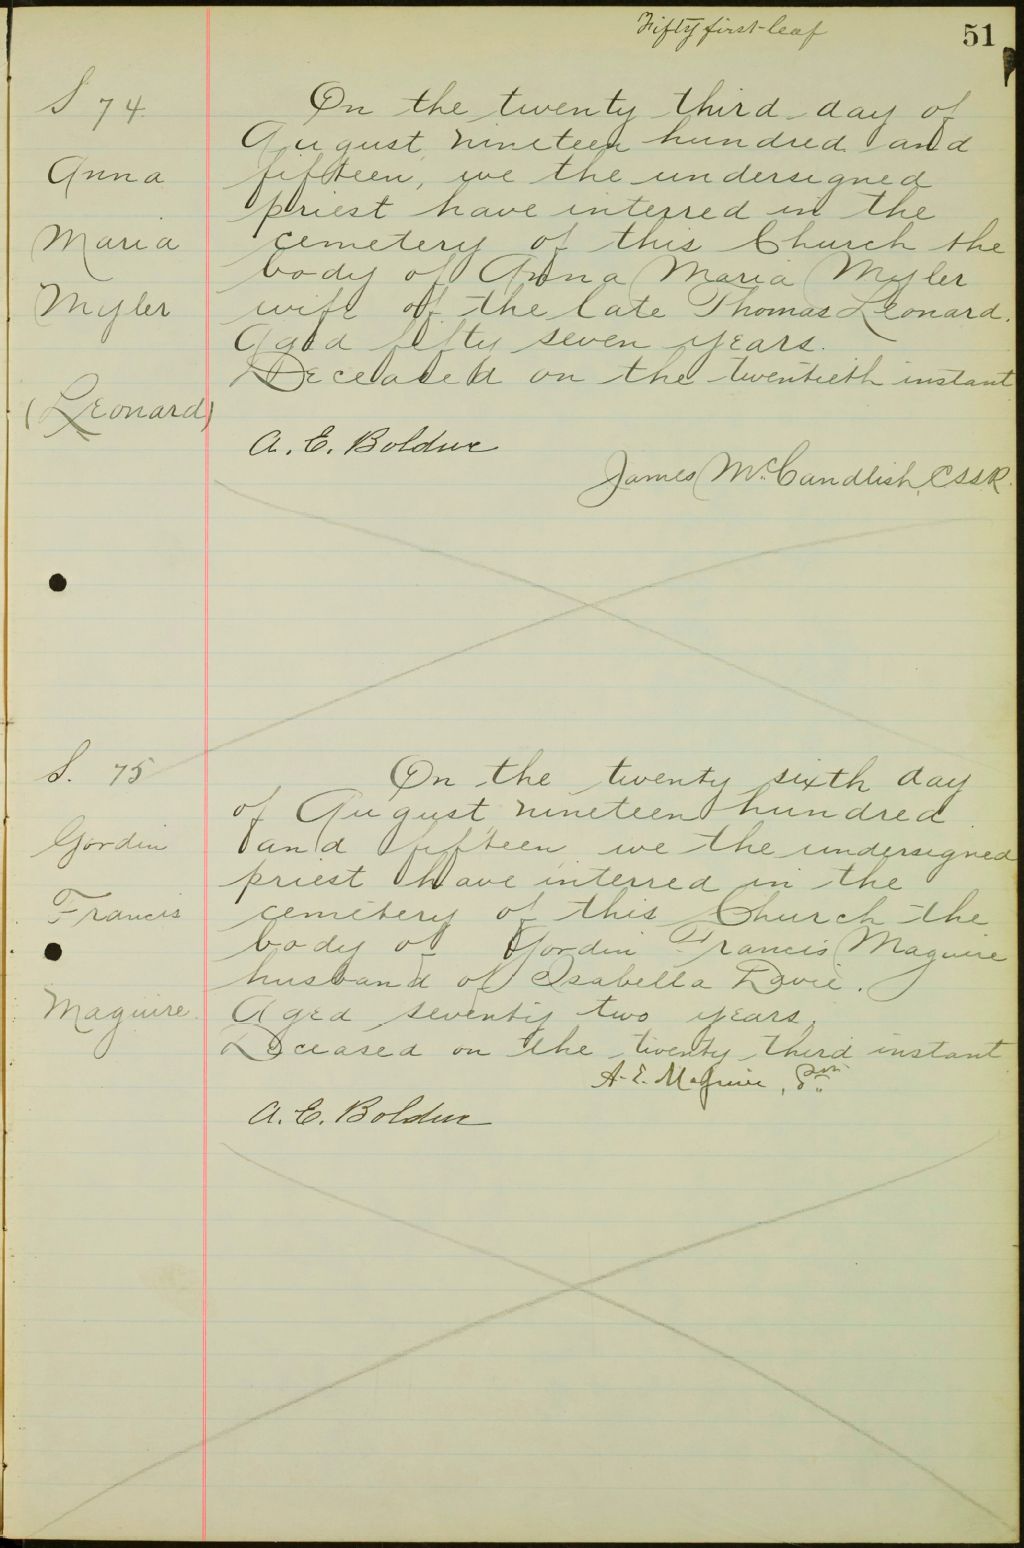 Fifty first leaf
51
S 74
Anna
Maria
Myler
(Leonard)
On the twenty third day of
August nineteen hundred and
fifteen, we the undersigned
priest have interred in the
cemetery of this Church the
body of Anna Maria Myler
wife of the late Thomas Leonard.
Aged fifty seven years.
Deceased on the twentieth instant
A. E. Bolduc
James McCandlish, CSSR.
S. 75
Gordin
Francis
Maguire.
On the twenty sixth day
of August nineteen hundred
and fifteen, we the undersigned
priest have interred in the
cemetery of this Church the
body of Gordin Francis Maguire
husband of Isabella Davie.
Aged seventy two years.
Dceased on the twenty third instant
A. E. Maguire,
A. E. Bolduc